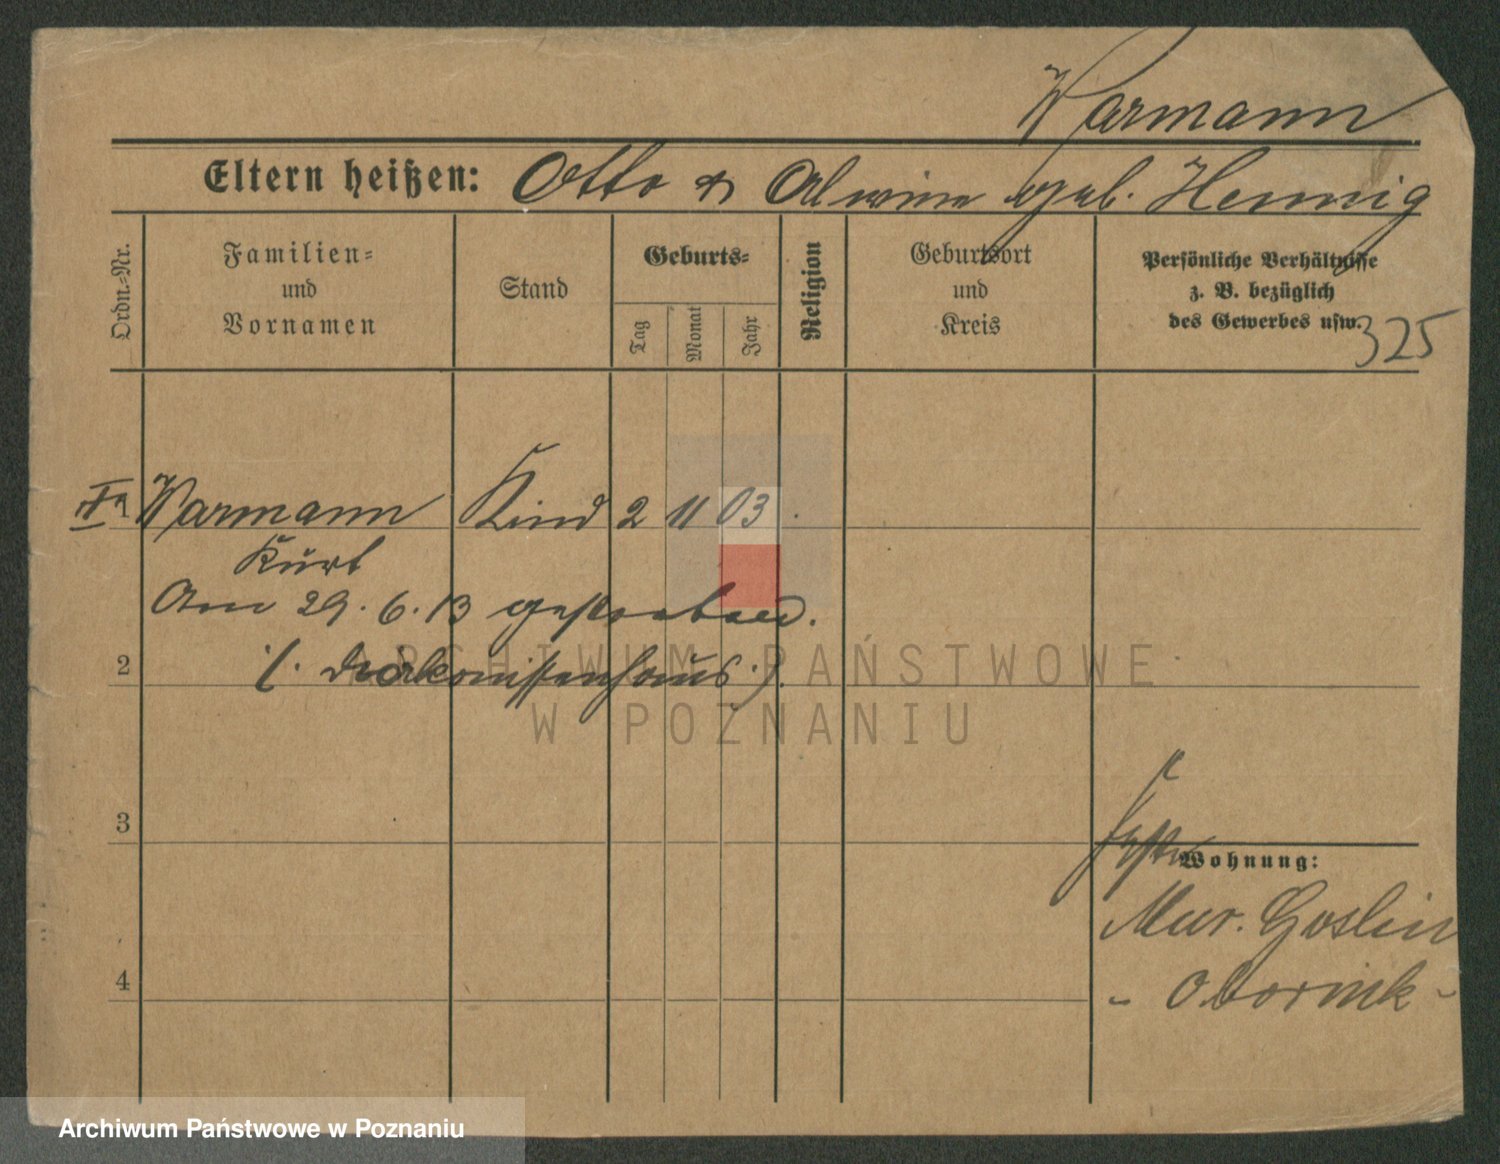 Warmann
Eltern heißen: Otto & Alwine geb. Hennig
Ordn.-Nr.
Familien-
und
Vornamen
Stand
Geburts-
Tag
Monat
Jahr
Religion
Geburtsort
und
Kreis
Persönliche Verhältnisse
z. B. bezüglich
des Gewerbes usw.
325
1 Warmann Kind 2 11 03
Kurt
Am 29. 6. 13 gestorben.
(Diakonissenhaus.)
2
3
4
Wohnung:
Mur. Goslin
- Obornik -
ARCHIWUM PAŃSTWOWE
W POZNANIU
Archiwum Państwowe w Poznaniu